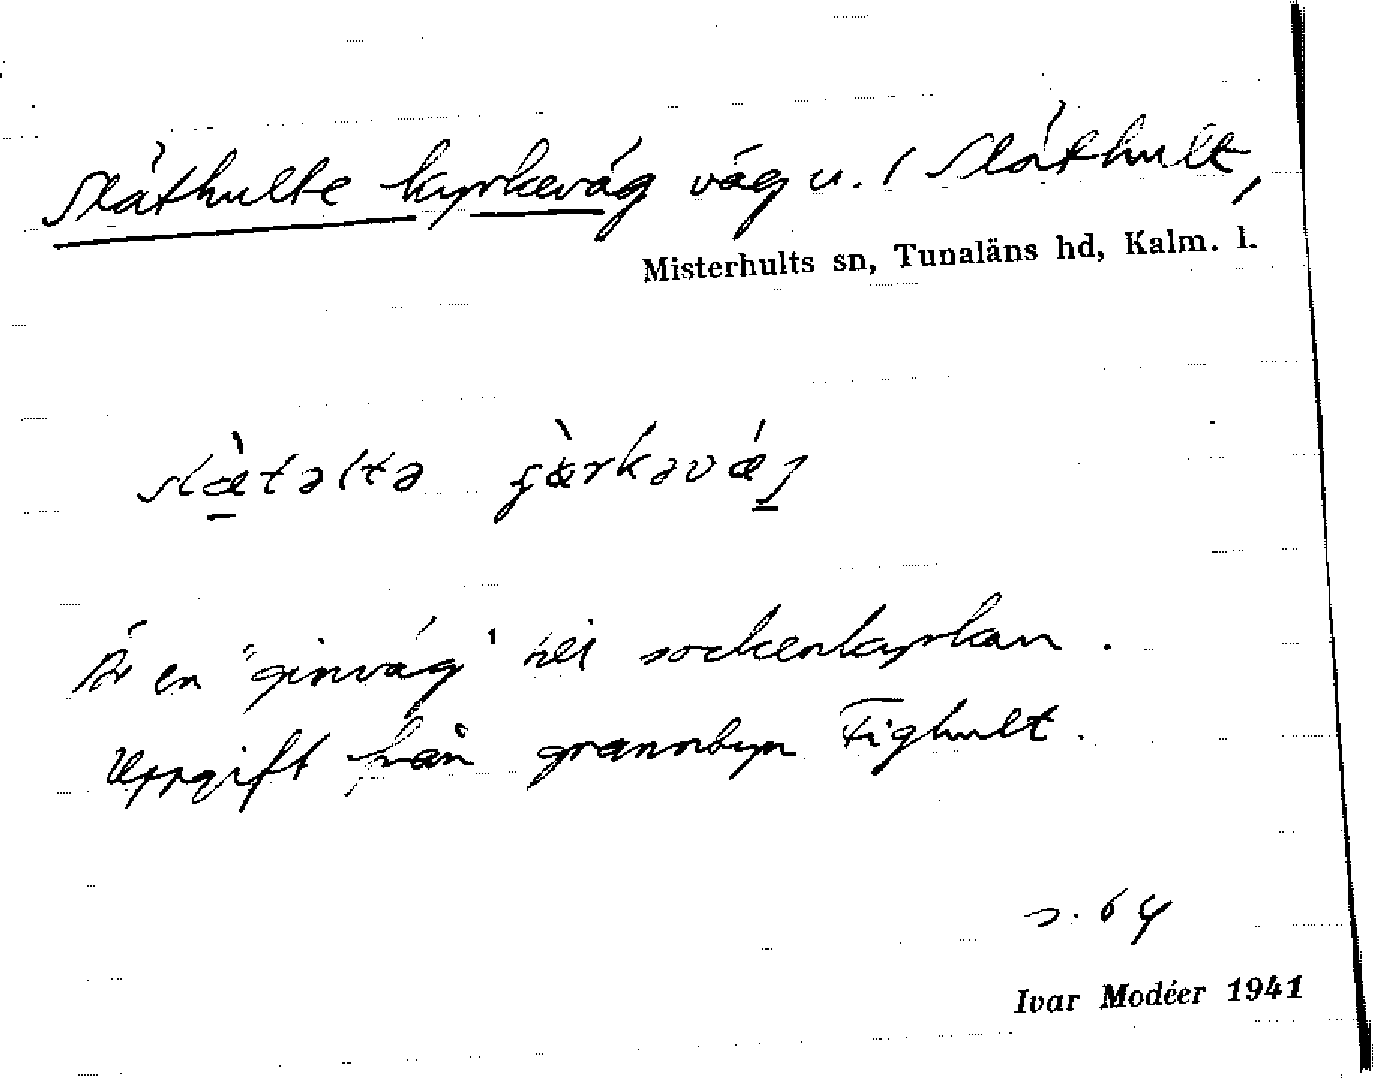 Släthulte kyrkeväg väg u. / Släthult,
Misterhults sn, Tunaläns hd, Kalm. l.
slæ̀təltə çæ̀rkəvǽg
Är en "ginväg" till sockenkyrkan.
Uppgift från grannbyn Fighult.
s. 64
Ivar Modéer 1941